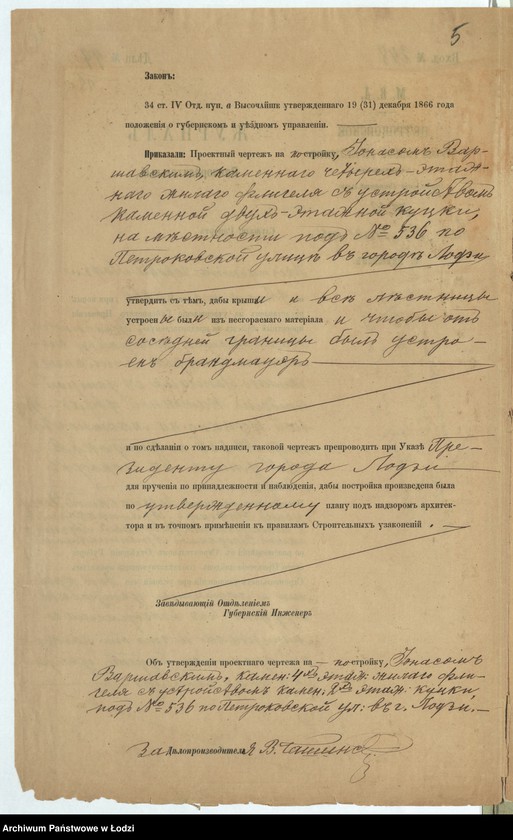 5
Законъ:
34 ст. IV Отд. кун. а Высочайше утвержденнаго 19 (31) декабря 1866 года
положенія о губернскомъ и уѣздномъ управленіи.
Приказали: Проектный чертежъ на постройку, Іонасомъ Вар-
шавскимъ, каменнаго четырехъ-этаж-
наго жилаго флигеля съ устройствомъ
каменной двухъ-этажной кучки,
на мѣстности подъ № 536 по
Петроковской улицѣ въ городѣ Лодзи
утвердить съ тѣмъ, дабы крыши и всѣ лѣстницы
устроены были изъ несгораемаго матеріала и чтобы отъ
сосѣдней границы былъ устро-
енъ брандмауэръ
и по сдѣланіи о томъ надписи, таковой чертежъ препроводить при Указѣ Пре-
зиденту города Лодзи
для врученія по принадлежности и наблюденія, дабы постройка произведена была
по утвержденному плану подъ надзоромъ архитек-
тора и въ точномъ примѣненіи къ правиламъ Строительныхъ узаконеній.
Завѣдывающій Отдѣленіемъ
Губернскій Инженеръ
Объ утвержденіи проектнаго чертежа на постройку, Іонасомъ
Варшавскимъ, камен: 4хъ этаж: жилаго фли-
геля съ устройствомъ камен. 2хъ этаж: кучки,
подъ № 536 по Петроковской ул: въ г. Лодзи.
За Дѣлопроизводителя
Archiwum Państwowe w Łodzi